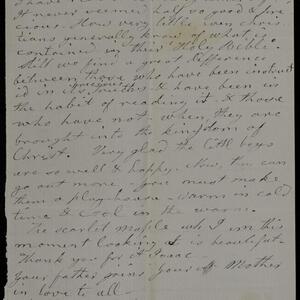 it never seemed half so good & pre
cious. How very little even chris
tians generally know of what is
contained in their "Holy Bible"
Still we find a great difference
between those who have been instruct
ed in its precious truths & have been in
the habit of reading it & those
who have not when they are
brought into the kingdom of
Christ. Very glad the little boys
are so well & happy. Now, they can
go out more - you must make
them a play-house - warm in cold
time & cool in the warm.
The scarlet maple wh. I am this
moment looking at is beautiful-
Thank you for it Isaac
Your father joins your aff Mother
in love to all -